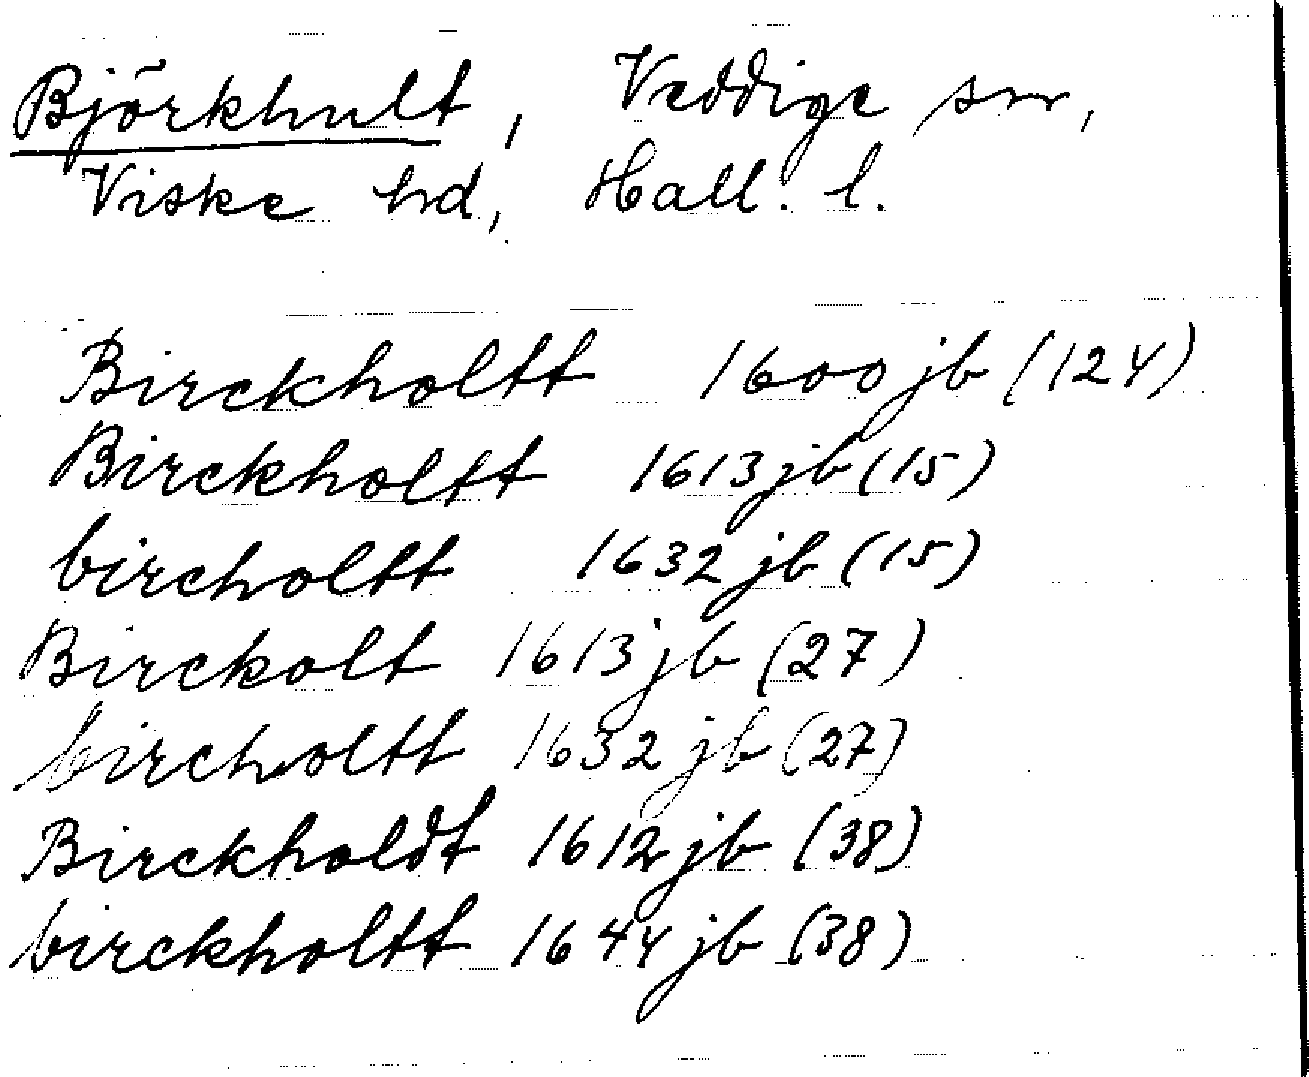 Björkhult, Veddige sn,
Viske hd, Hall. l.
Birckholtt 1600 jb (124)
Birckholtt 1613 jb (15)
bircholtt 1632 jb (15)
Birckolt 1613 jb (27)
bircholtt 1632 jb (27)
Birckholdt 1612 jb (38)
birckholtt 1644 jb (38)